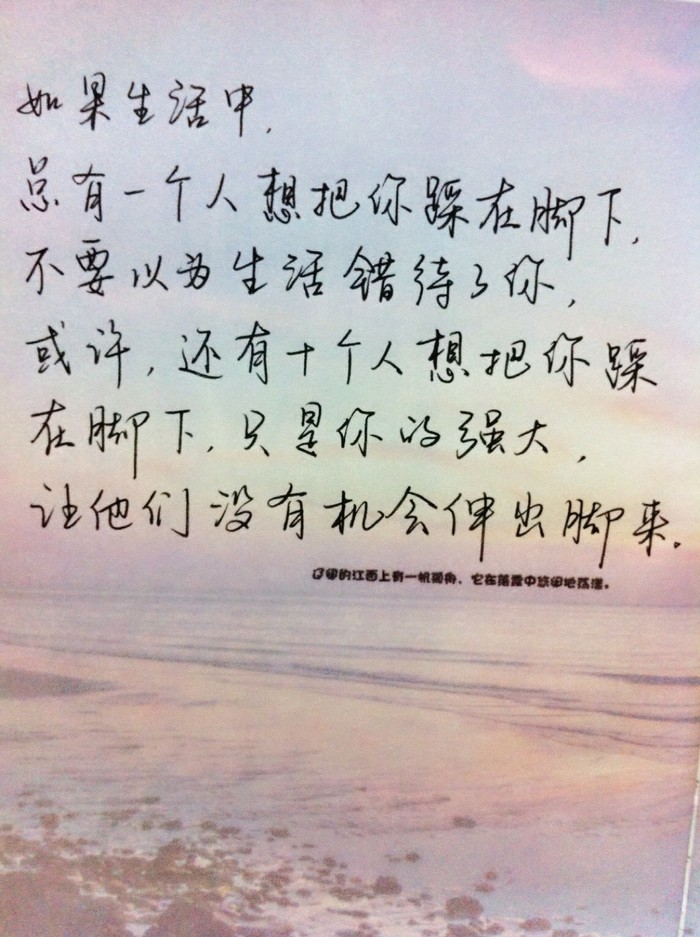 如果生活中,
总有一个人想把你踩在脚下,
不要以为生活错待了你,
或许,还有十个人想把你踩
在脚下,只是你的强大,
让他们没有机会伸出脚来。
辽阔的江面上有一帆孤舟,它在落霞中悠闲地荡漾。